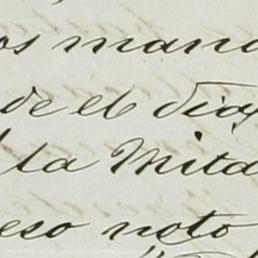 os mand
de el dia
la Mitad
eso noto